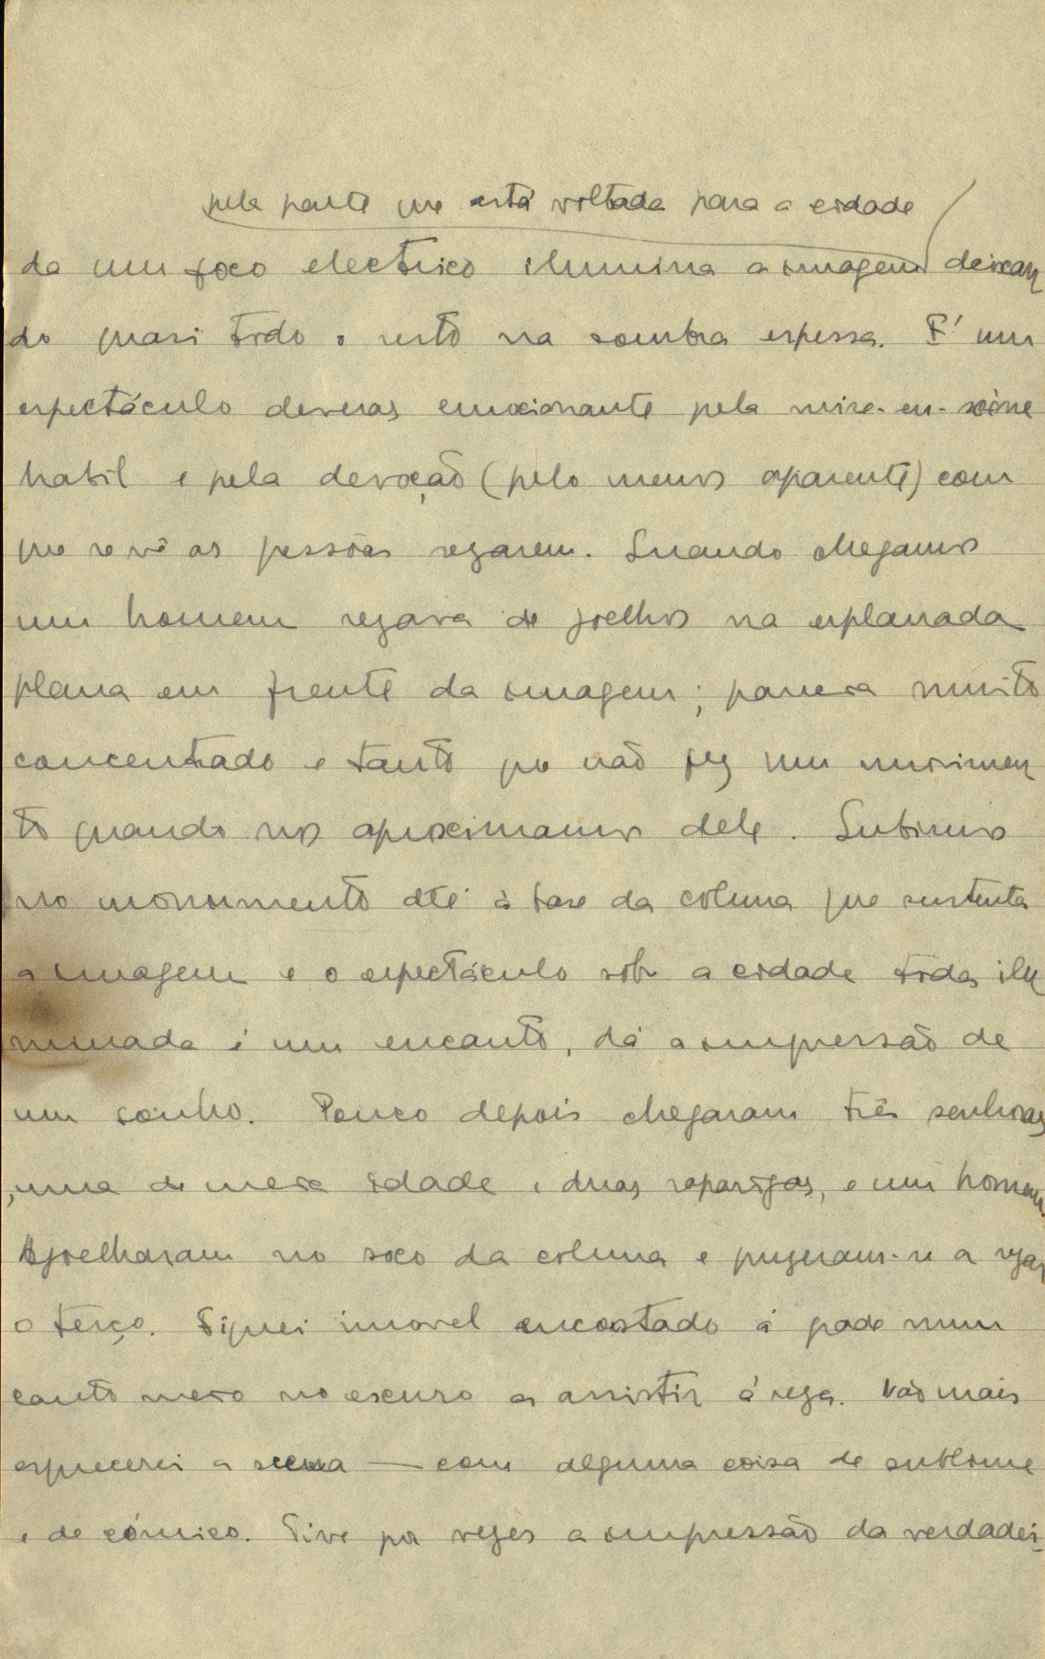 pela parte que está voltada para a cidade
da um foco electrico ilumina a imagem deixan
do quasi todo o resto na sombra espessa. E' um
espectáculo deveras emocionante pela mise-en-scène
habil e pela devoção (pelo menos aparente) com
que se vê as pessoas rezarem. Quando chegamos
um homem rezava de joelhos na esplanada
plana em frente da imagem; parecia muito
concentrado e tanto que não fez um movimen
to quando nos aproximamos dele. Subimos
no monumento até à base da coluna que sustenta
a imagem e o espectáculo sobre a cidade toda ilu
minada é um encanto, dá a impressão de
um sonho. Pouco depois chegaram três senhoras,
uma de meia idade e duas raparigas, e um homem.
Ajoelharam no soco da coluna e puzeram-se a rezar
o terço. Fiquei imovel encostado á grade num
canto meio no escuro a assistir á reza. Não mais
esquecerei a scena — com alguma coisa de sublime
e de cómico. Tive por vezes a impressão da verdadei-